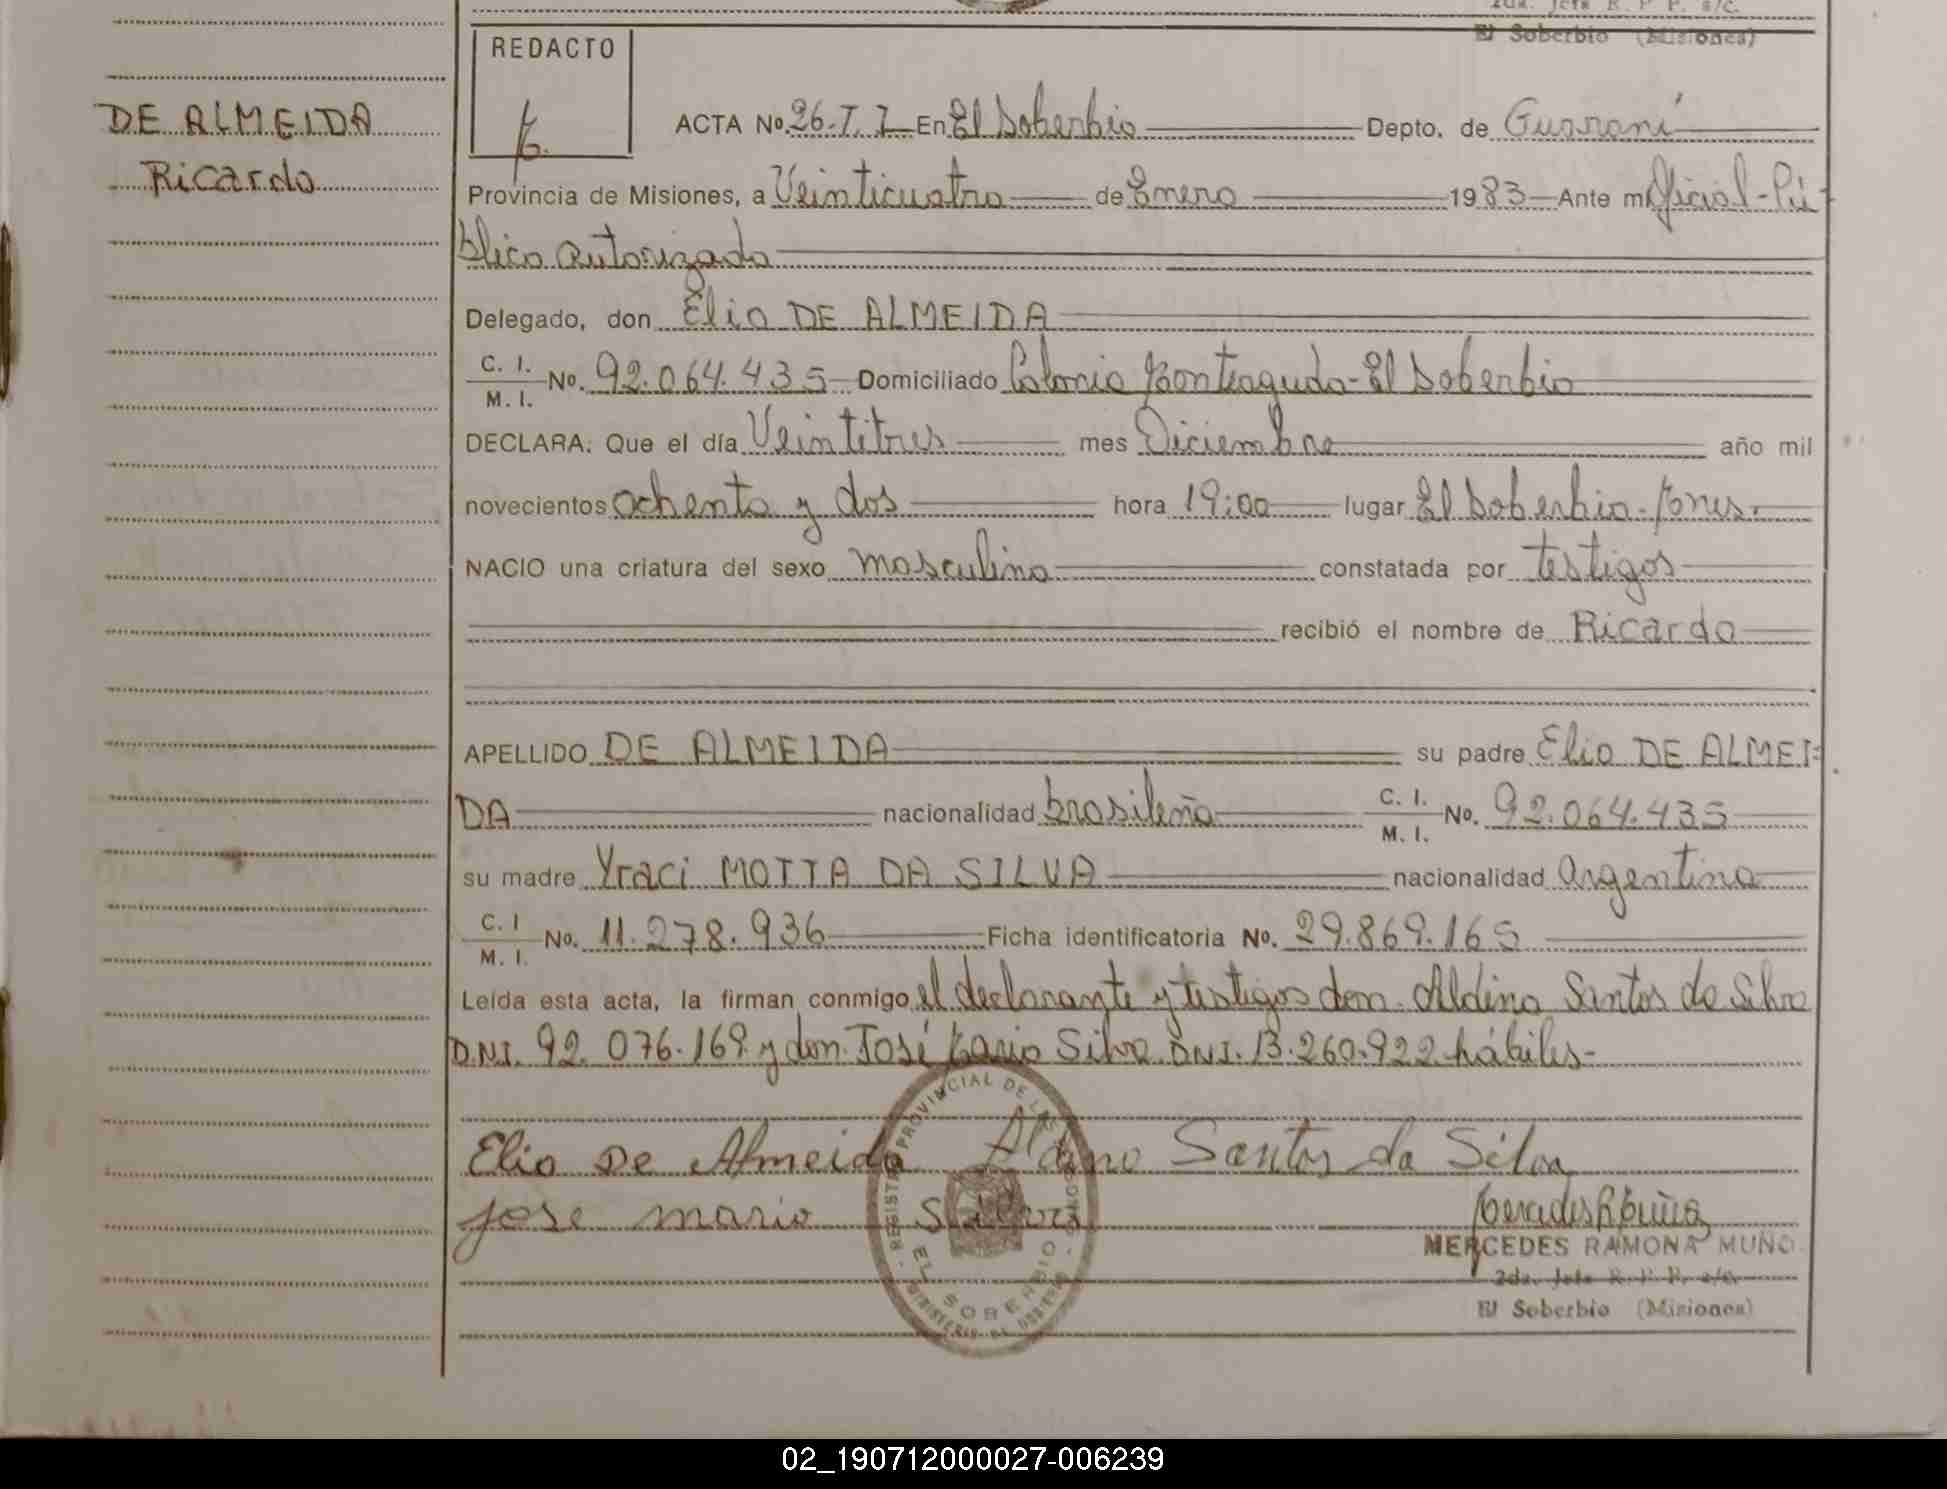 2da. Jefe R. P. P. s/c.
El Soberbio (Misiones)
REDACTO
DE ALMEIDA
Ricardo
ACTA No. 26-T. I En El Soberbio Depto. de Guaraní
Provincia de Misiones, a Veinticuatro de Enero 1983 Ante mí Oficial-Pú-
blico Autorizado
Delegado, don Elio DE ALMEIDA
C. I. / M. I. No. 92.064.435 Domiciliado Colonia Monteagudo-El Soberbio
DECLARA: Que el día Veintitres mes Diciembre año mil
novecientos ochenta y dos hora 19:00 lugar El Soberbio-Mnes.
NACIO una criatura del sexo masculino constatada por testigos
recibió el nombre de Ricardo
APELLIDO DE ALMEIDA su padre Elio DE ALMEI-
DA nacionalidad brasileña C. I. / M. I. No. 92.064.435
su madre Yraci MOTTA DA SILVA nacionalidad Argentina
C. I / M. I. No. 11.278.936 Ficha identificatoria No. 29.869.165
Leída esta acta, la firman conmigo el declarante y testigos don Aldino Santos da Silva
D.N.I. 92.076.169 y don José Mario Silva D.N.I. 13.260.922 hábiles-
Elio De Almeida Aldino Santos da Silva
Jose mario Silva
REGISTRO PROVINCIAL DE LAS PERSONAS
EL SOBERBIO
MERCEDES RAMONA MUÑO
2da. Jefe R. P. P. s/c.
El Soberbio (Misiones)
02_190712000027-006239